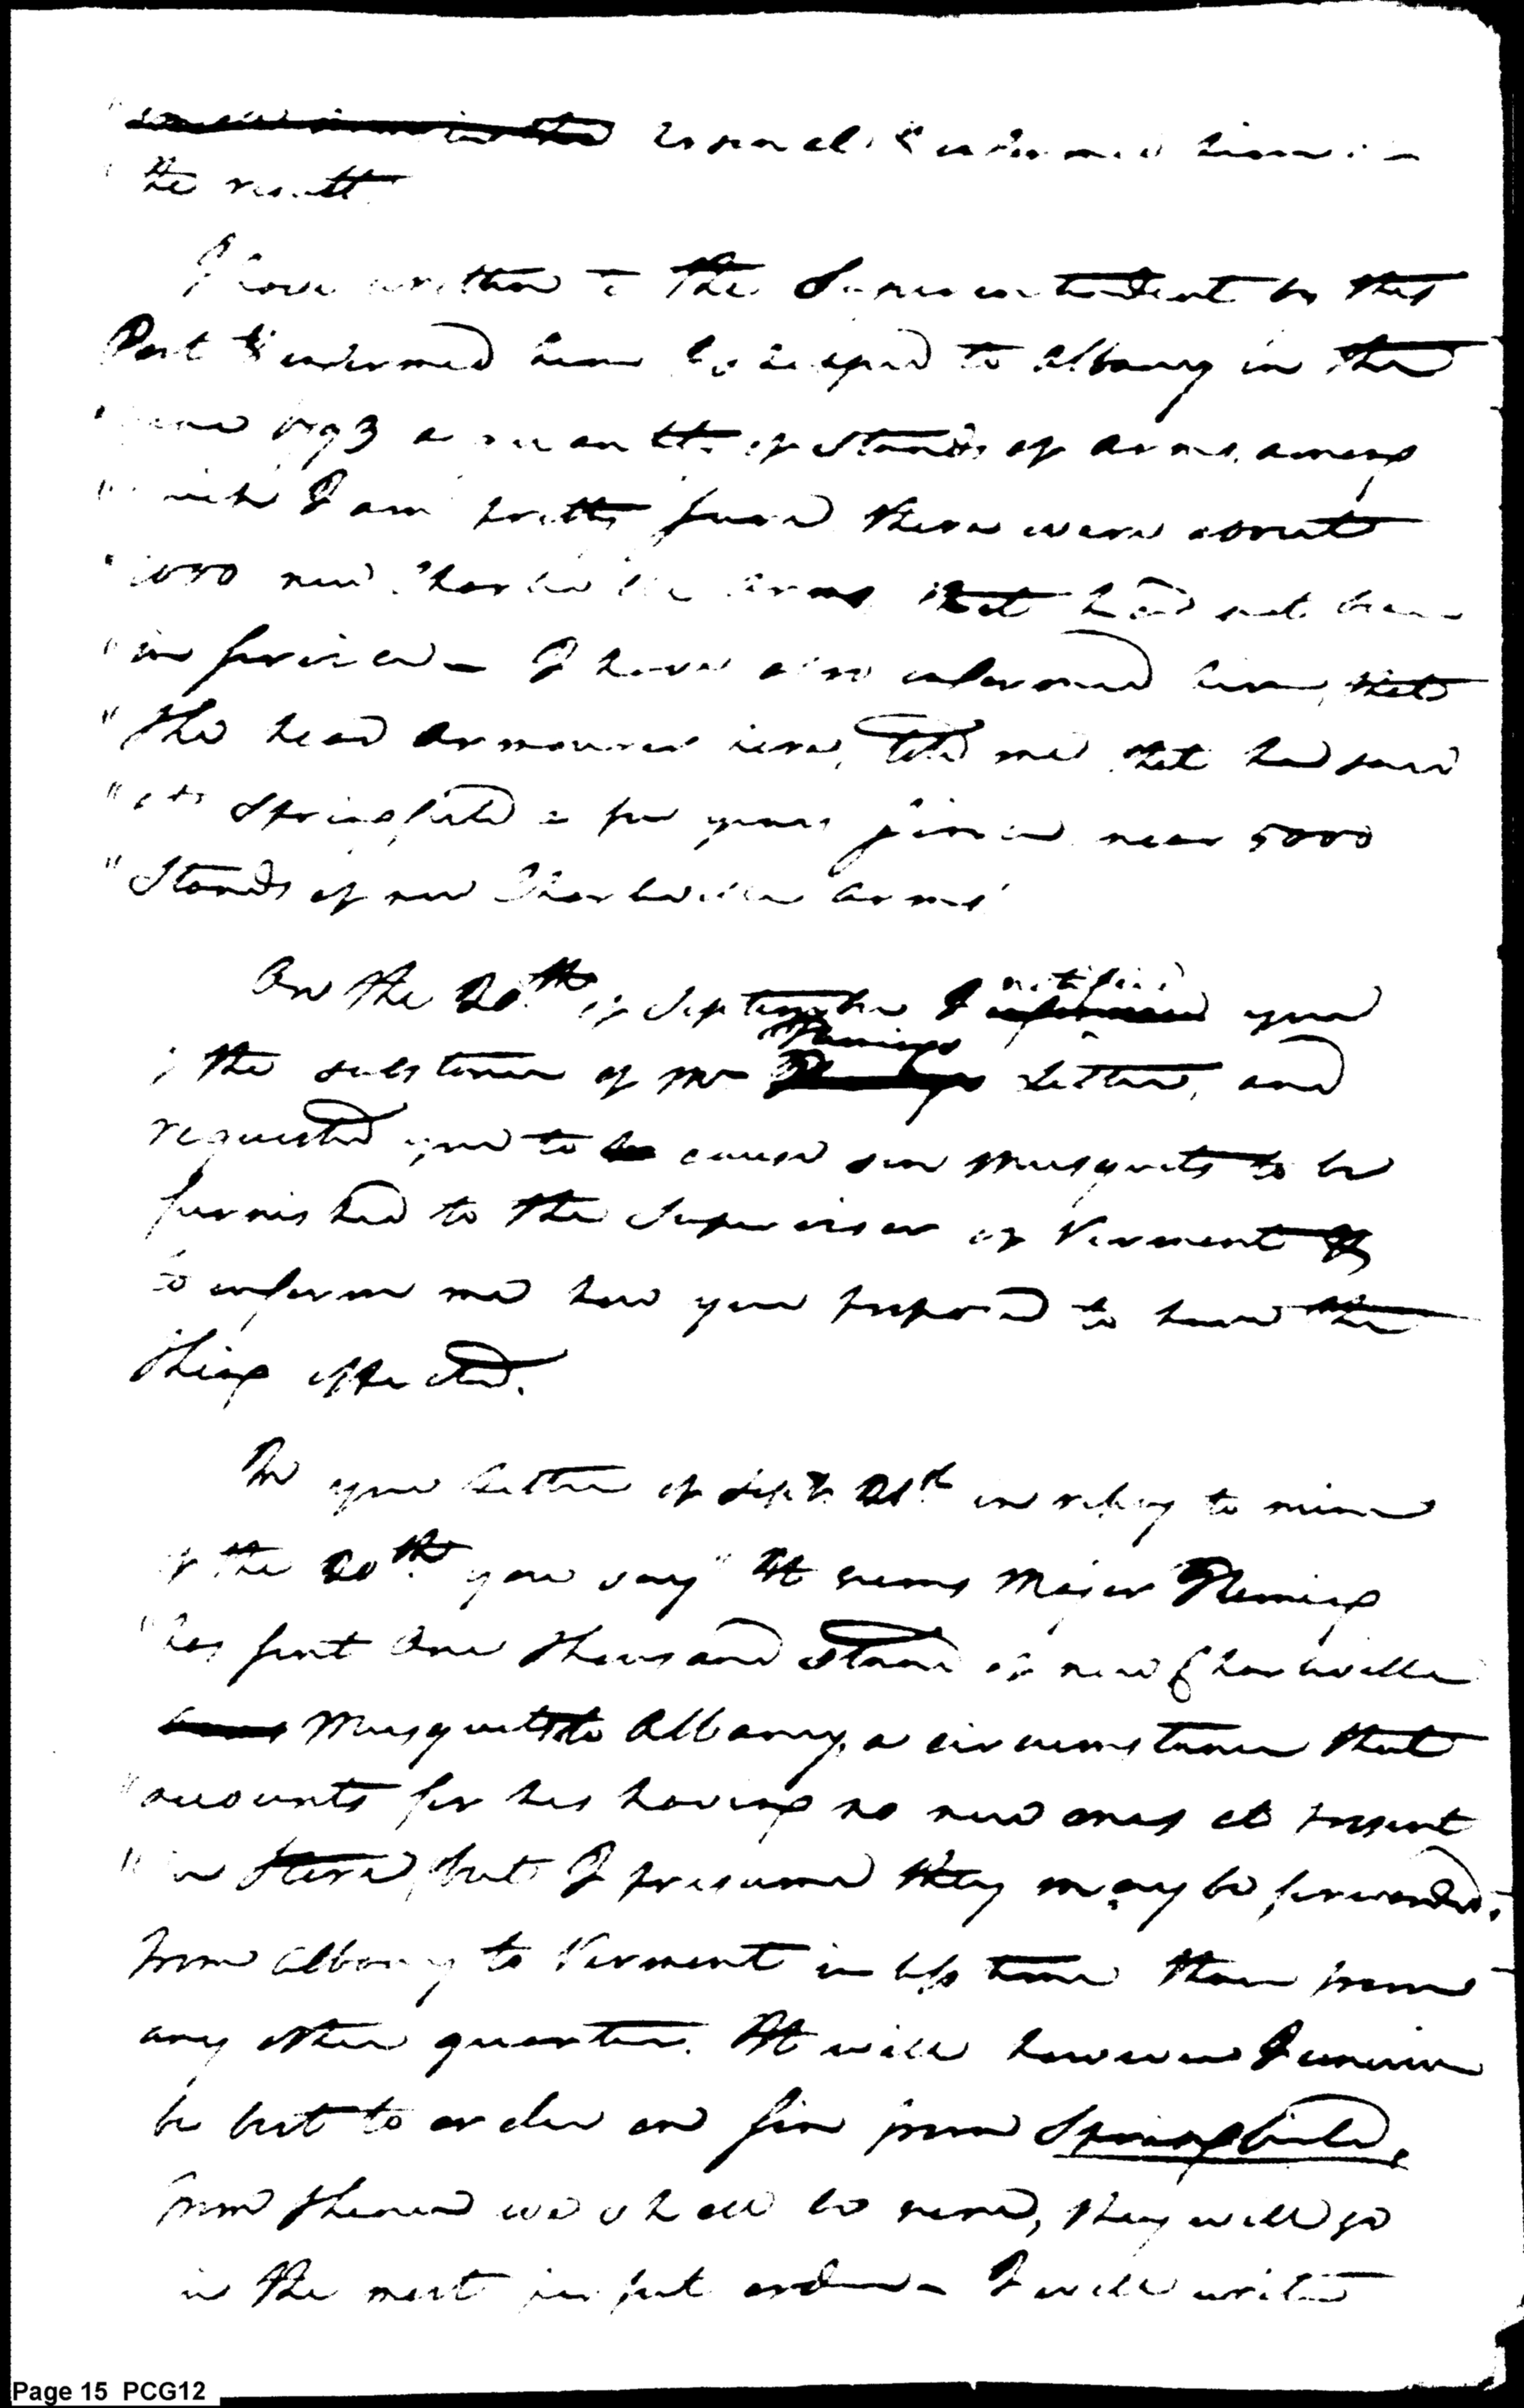 the result.
I have written to the Superintendent of this
Port & informed him I shipped to Albany in the
1793 a quantity of Stands of arms, among
I am pretty sure there were about
new Charleville Arms that had not been
"in service – I have also informed him, that
"the head Armourer here, told me that he saw
" at Springfield a few years since near 5000
" Stands of new Charleville arms"
On the 20th of September I notified you
of the substance of Mr Flemings Letter, and
requested you to cause six Musquets to be
furnished to the Supervisor of Vermont &
to inform me how you proposed to have the
thing effected.
In your letter of Septr 21st in reply to mine
of the 20th you say "It seems Major Fleming
"has sent One thousand stand of new Charleville
Musquets to Albany, a circumstance that
"accounts for his having no new ones at present
"in Store, but I presume they may be forwarded
from Albany to Vermont in less time than from
any other quarter. It will however I conceive
be best to order on six from Springfield,
from thence we shall be sure, they will go
in the most perfect order – I will write
Page 15 PCG12